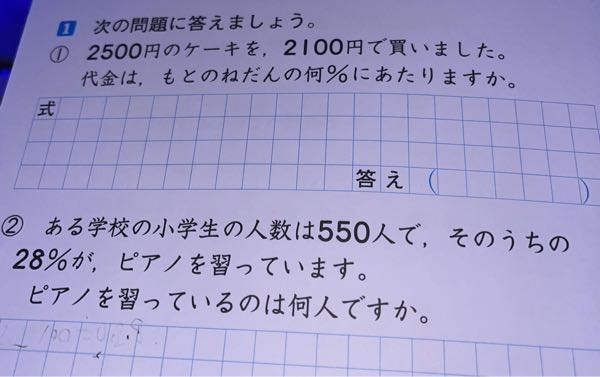 1 次の問題に答えましょう。
① 2500円のケーキを，2100円で買いました。
代金は，もとのねだんの何％にあたりますか。
式
答え（　　　）
② ある学校の小学生の人数は550人で，そのうちの
28％が，ピアノを習っています。
ピアノを習っているのは何人ですか。